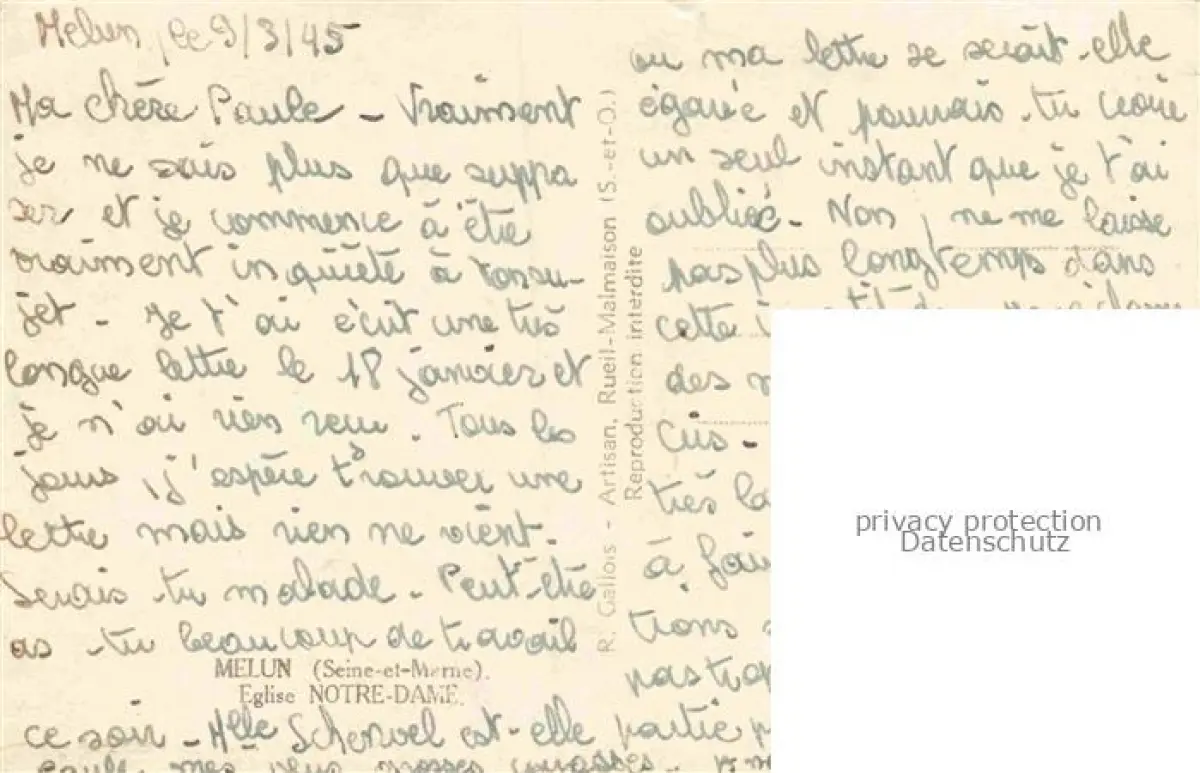 Melun, le 9/3/45
Ma chère Paule – Vraiment
je ne sais plus que suppo
ser et je commence à être
vraiment inquiète à ton su-
jet – Je t'ai écrit une très
longue lettre le 18 janvier et
je n'ai rien reçu. Tous les
jours, j'espère trouver une
lettre mais rien ne vient.
Serais-tu malade – Peut-être
as-tu beaucoup de travail
MELUN (Seine-et-Marne).
Eglise NOTRE-DAME.
R. Gallois - Artisan, Rueil-Malmaison (S.-et-O.)
Reproduction interdite
ou ma lettre se serait-elle
égarée et pourrais-tu croire
un seul instant que je t'ai
oubliée – Non, ne me laisse
pas plus longtemps dans
cette
des
cis –
très
à
trions
pas trop
ce soir – Mlle est-elle partie
mes plus grosses
privacy protection
Datenschutz